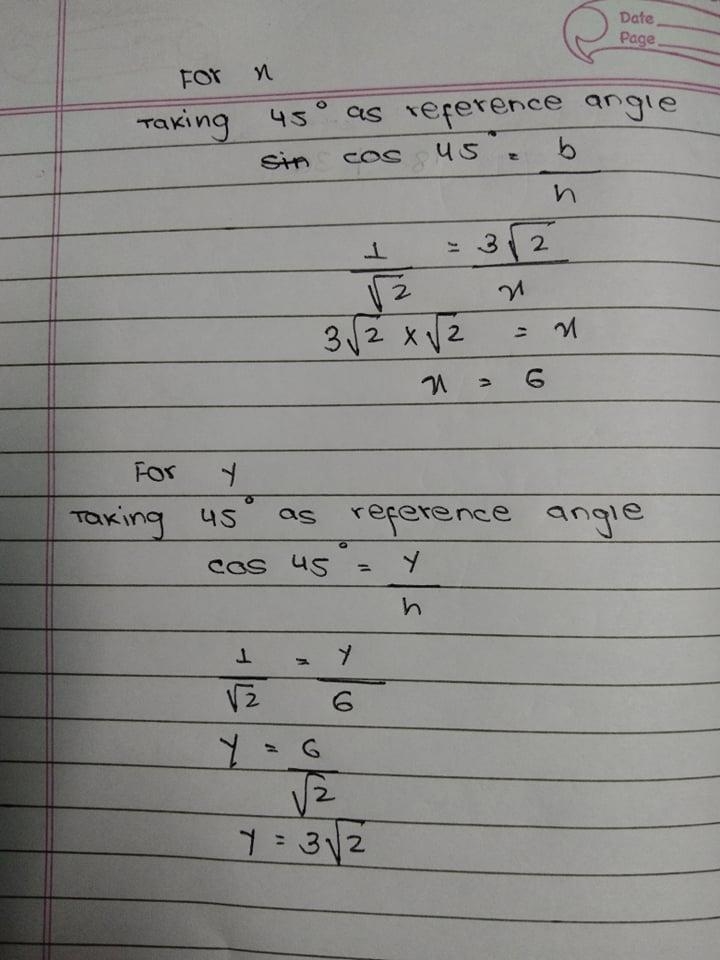 Date
Page
For x
Taking 45° as reference angle
sin cos 45° = b/h
1/√2 = 3√2/x
3√2 × √2 = x
x = 6
For y
Taking 45° as reference angle
cos 45° = y/h
1/√2 = y/6
y = 6/√2
y = 3√2